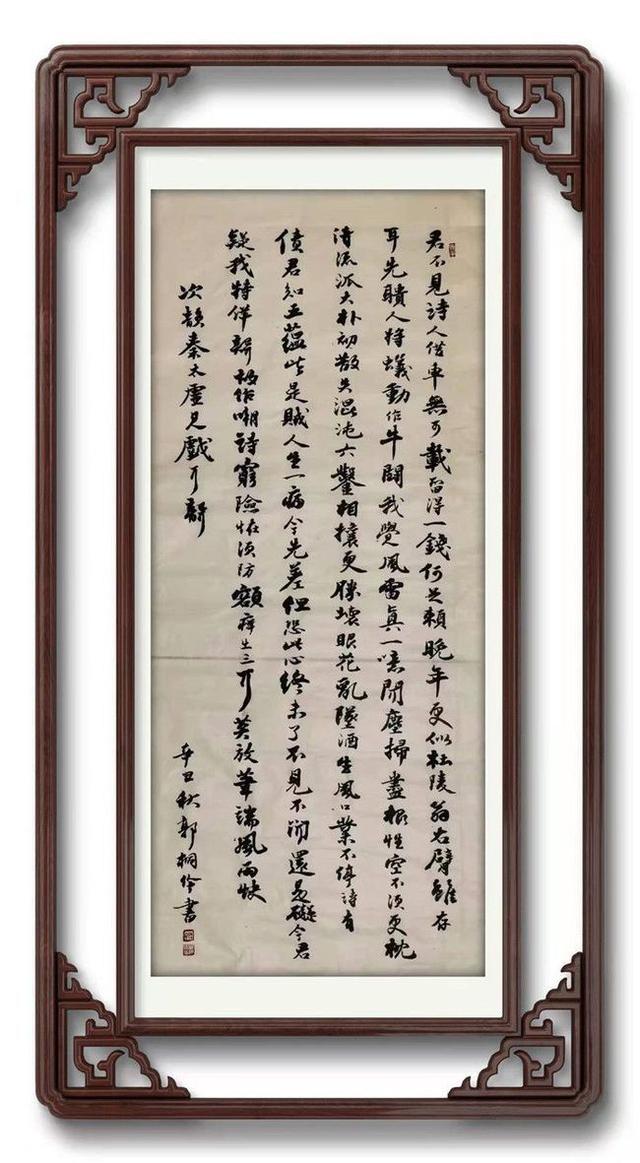 君不見詩人借車無可載留得一錢何足賴晚年更似杜陵翁右臂雖存
耳先聵人將蟻動作牛鬪我覺風雷真一噫聞塵掃盡根性空不須更枕
清流派大朴初散失混沌六鑿相攘更勝壞眼花亂墜酒生風口業不停詩有
債君知五蘊皆是賊人生一病今先差但恐此心終未了不見不聞還是礙今君
疑我特佯聾故作嘲詩窮險怪須防額癢出三耳莫放筆端風雨快
次韻秦太虛見戲耳聾
辛丑秋郭桐書